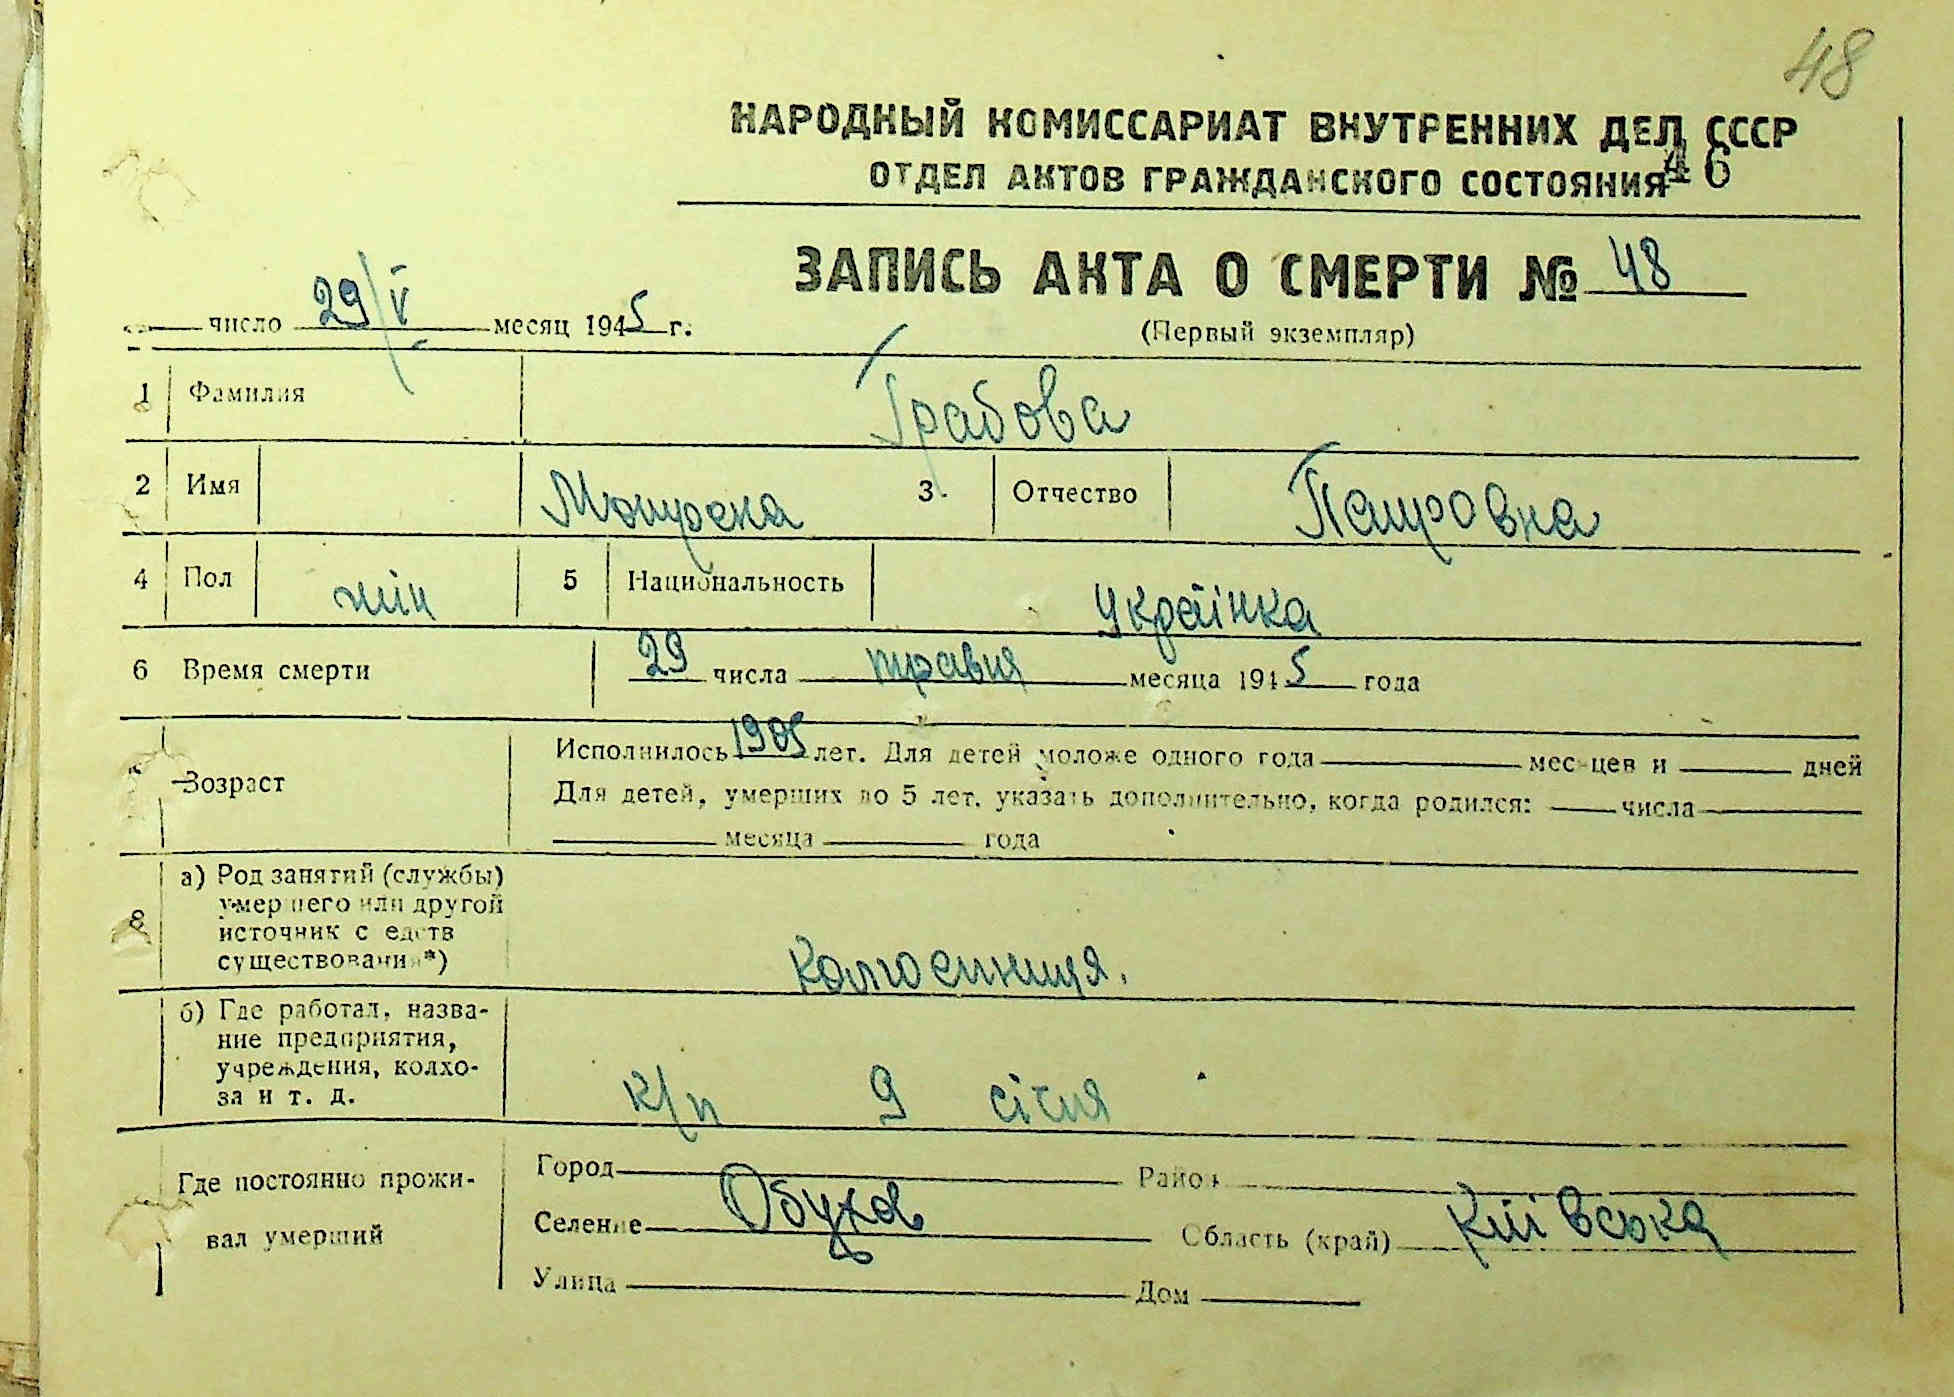 48
НАРОДНЫЙ КОМИССАРИАТ ВНУТРЕННИХ ДЕЛ СССР
ОТДЕЛ АКТОВ ГРАЖДАНСКОГО СОСТОЯНИЯ 46
ЗАПИСЬ АКТА О СМЕРТИ № 48
число 29/V месяц 1945 г.
(Первый экземпляр)
1 Фамилия Грабова
2 Имя Мотрена 3. Отчество Петровна
4 Пол жін 5 Национальность Українка
6 Время смерти 29 числа травня месяца 1945 года
Возраст Исполнилось 1905 лет. Для детей моложе одного года месяцев и дней
Для детей, умерших до 5 лет, указать дополнительно, когда родился: числа
месяца года
8 а) Род занятий (службы)
умершего или другой
источник средств
существования*)
Колгоспниця.
б) Где работал, назва-
ние предприятия,
учреждения, колхо-
за и т. д.
к/п 9 січня
Где постоянно прожи-
вал умерший
Город Район
Селение Обухов Область (край) Київська
Улица Дом